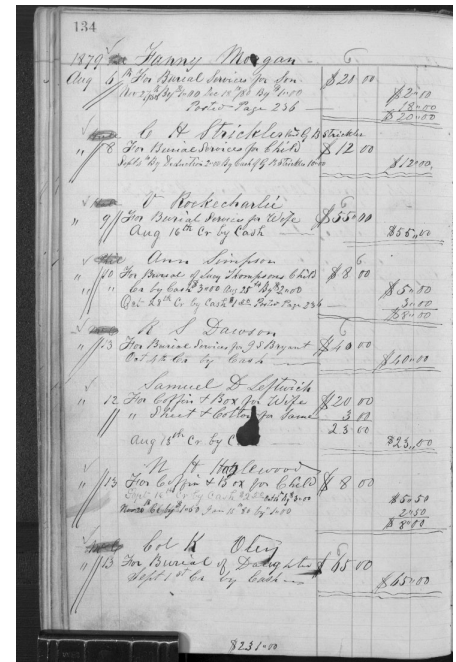 134
1879 Fanny Morgan
Aug 6th For Burial Services for Son $20 00
$2 00
Posted Page 236 18 00
$20 00
C H Strickler G B Strickler
" 8 For Burial Services for Child $12 00
By deduction 2 00 By Cash G B Strickler 10 00 $12 00
V Rockecharlie
" 9 For Burial Services for Wife $55 00
Aug 16th Cr by Cash $55 00
Ann Simpson
" 10 For Burial of Lucy Thompsons Child $8 00
" Cr by Cash $3 00 Aug 25th By $2 00 $5 00
23rd Cr by Cash Posted Page 236 3 00
$8 00
R S Dawson
" 13 For Burial Services for J S Bryant $40 00
Oct 4th Cr by Cash $40 00
Samuel D Leftwich
" 12 For Coffin & Box for Wife $20 00
" Sheet & Cotton for Same 3 00
23 00
Aug 15th Cr by C $23 00
N H Hazlewood
" 13 For Coffin & Box for Child $8 00
Sept 16th Cr by Cash $2 00 $5 50
Cr by $1 50 Jan 11th 80 by 1 00 2 50
$8 00
Col K Otey
" 13 For Burial of Daughter $65 00
Sept 1st Cr by Cash $65 00
$231 00